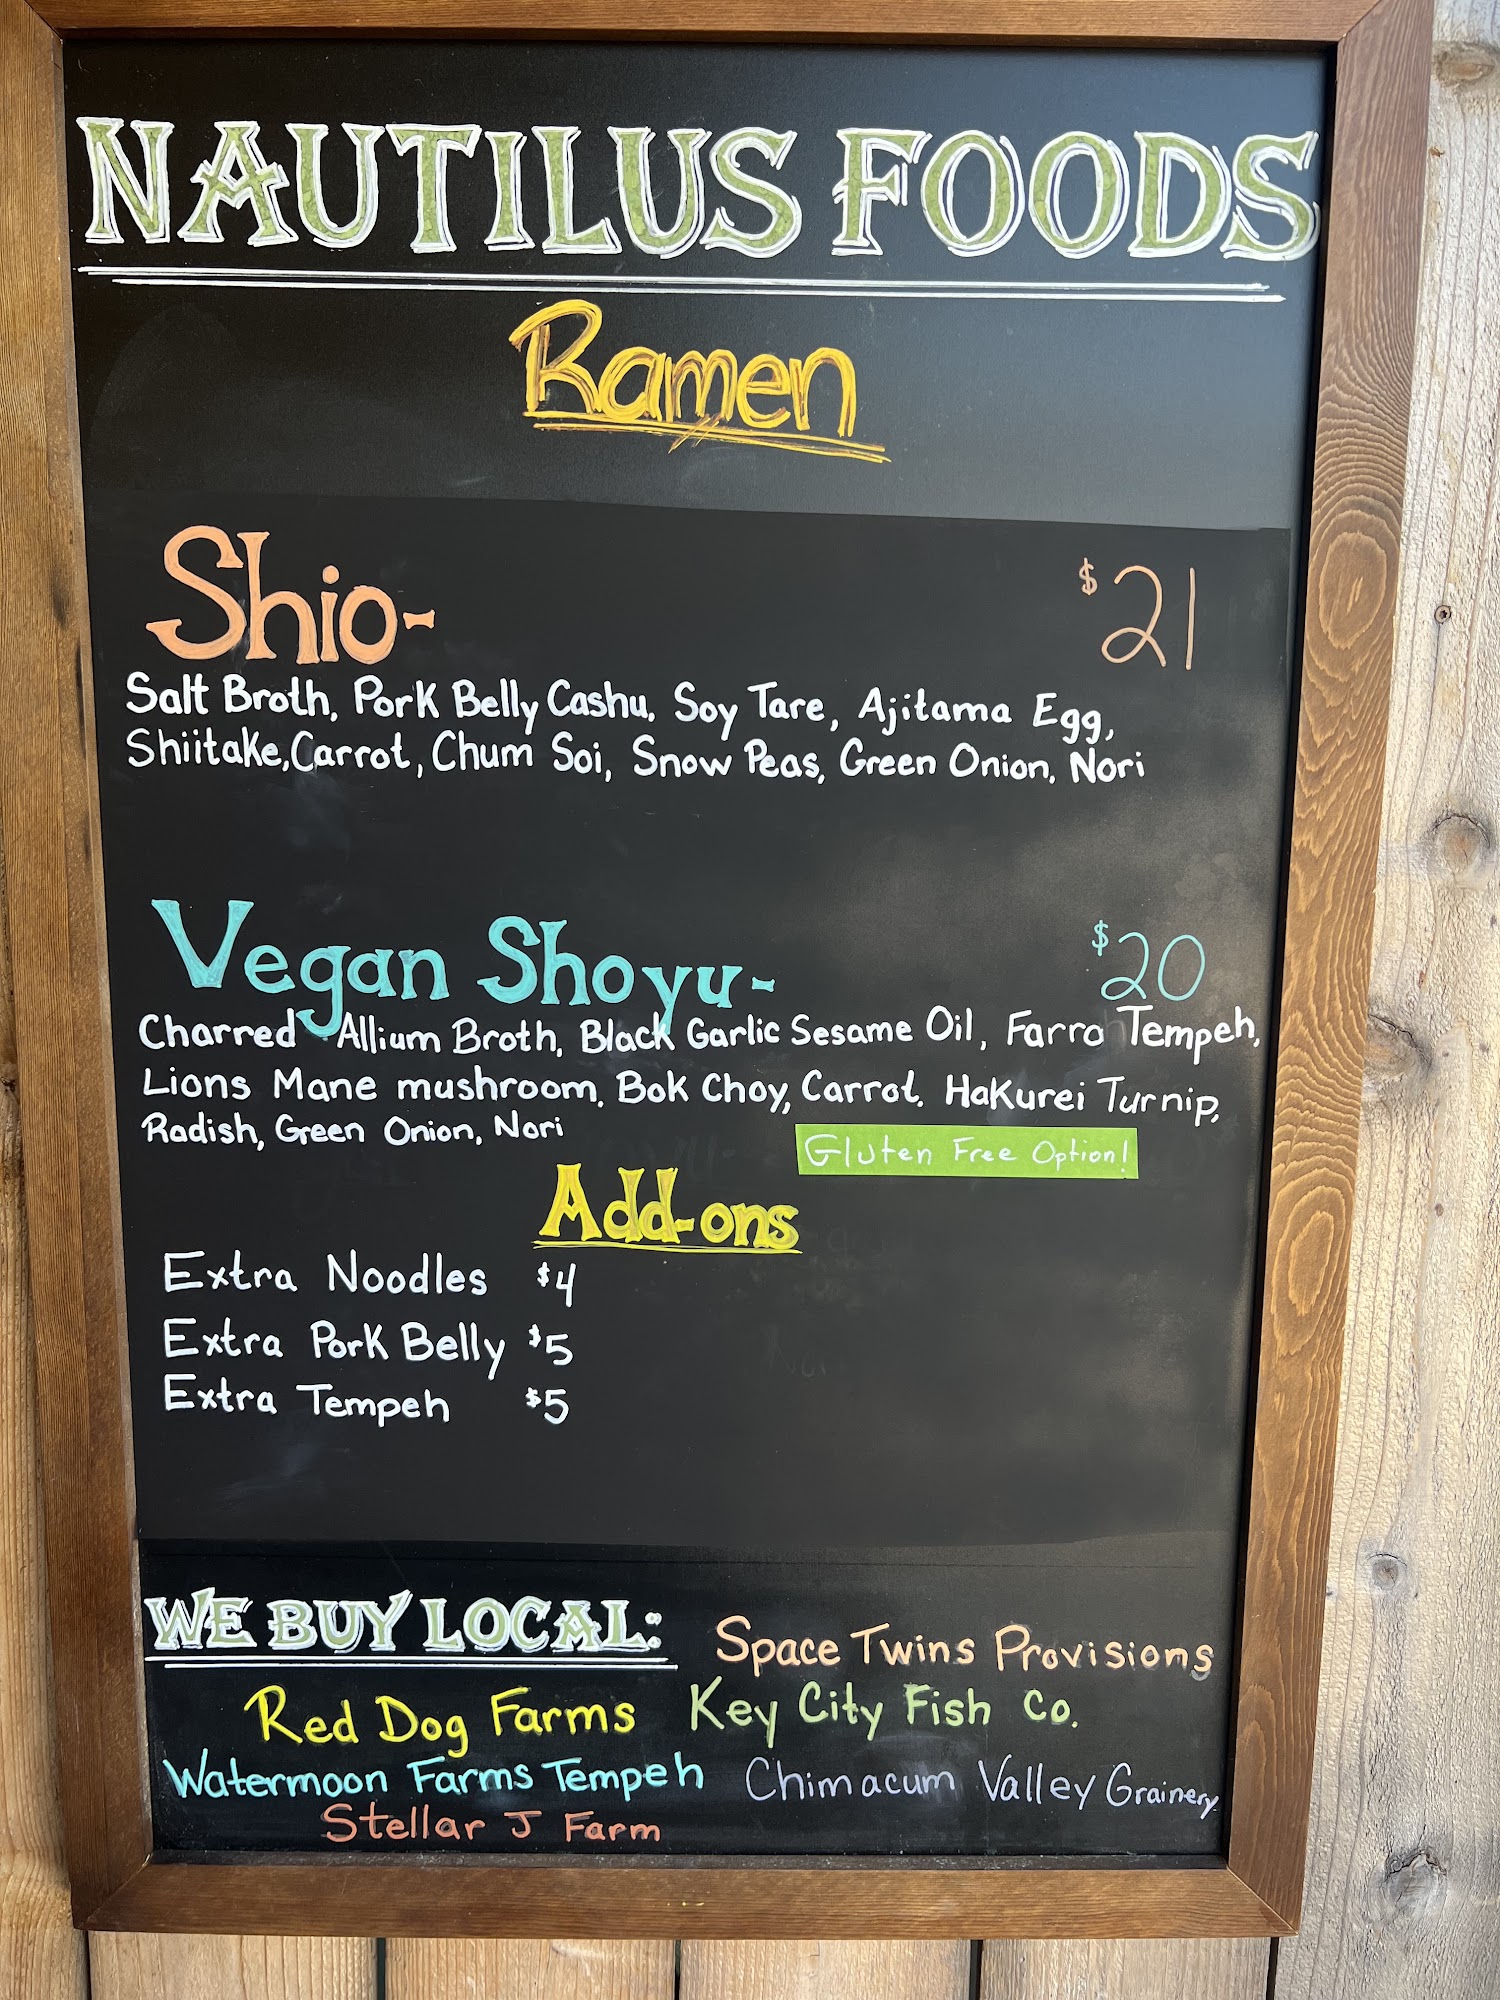 NAUTILUS FOODS
Ramen
Shio- $21
Salt Broth, Pork Belly Cashu, Soy Tare, Ajitama Egg,
Shiitake, Carrot, Chum Soi, Snow Peas, Green Onion, Nori
Vegan Shoyu- $20
Charred Allium Broth, Black Garlic Sesame Oil, Farro Tempeh,
Lions Mane mushroom, Bok Choy, Carrot, Hakurei Turnip,
Radish, Green Onion, Nori
Gluten Free Option!
Add-ons
Extra Noodles $4
Extra Pork Belly $5
Extra Tempeh $5
WE BUY LOCAL: Space Twins Provisions
Red Dog Farms Key City Fish Co.
Watermoon Farms Tempeh Chimacum Valley Grainery
Stellar J Farm